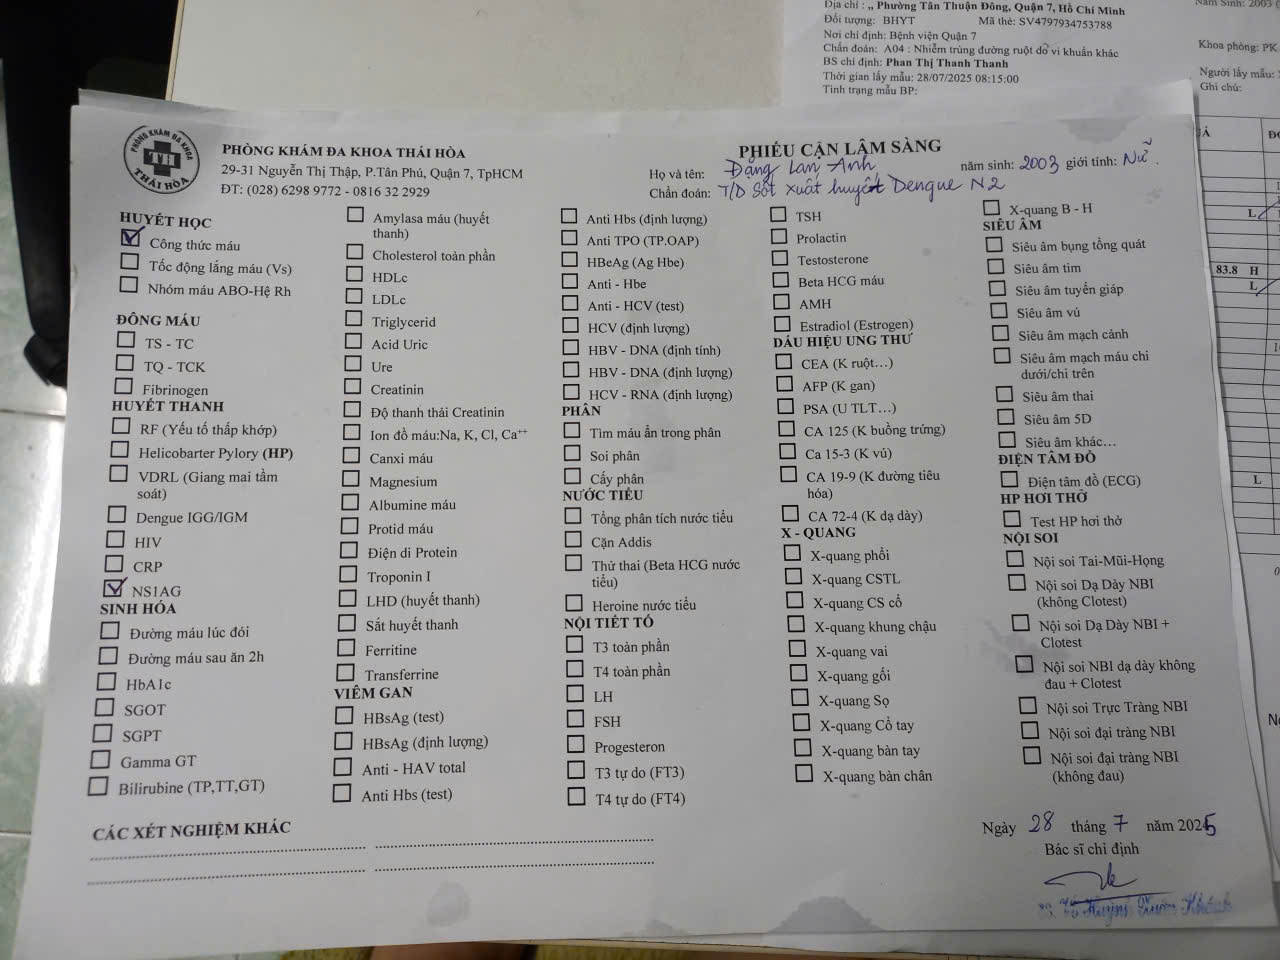 Địa chỉ : ,, Phường Tân Thuận Đông, Quận 7, Hồ Chí Minh
Đối tượng: BHYT Mã thẻ: SV4797934753788
Nơi chỉ định: Bệnh viện Quận 7
Chẩn đoán: A04 : Nhiễm trùng đường ruột do vi khuẩn khác
BS chỉ định: Phan Thị Thanh Thanh
Thời gian lấy mẫu: 28/07/2025 08:15:00
Tình trạng mẫu BP:
Năm Sinh: 2003
Khoa phòng: PK
Người lấy mẫu:
Ghi chú:
L
83.8 H
L
L
PHÒNG KHÁM ĐA KHOA
TH
THÁI HÒA
PHÒNG KHÁM ĐA KHOA THÁI HÒA
29-31 Nguyễn Thị Thập, P.Tân Phú, Quận 7, TpHCM
ĐT: (028) 6298 9772 - 0816 32 2929
PHIẾU CẬN LÂM SÀNG
Họ và tên: Đặng Lan Anh năm sinh: 2003 giới tính: Nữ.
Chẩn đoán: T/D Sốt xuất huyết Dengue N2
HUYẾT HỌC
Công thức máu
Tốc động lắng máu (Vs)
Nhóm máu ABO-Hệ Rh
ĐÔNG MÁU
TS - TC
TQ - TCK
Fibrinogen
HUYẾT THANH
RF (Yếu tố thấp khớp)
Helicobarter Pylory (HP)
VDRL (Giang mai tầm
soát)
Dengue IGG/IGM
HIV
CRP
NS1AG
SINH HÓA
Đường máu lúc đói
Đường máu sau ăn 2h
HbA1c
SGOT
SGPT
Gamma GT
Bilirubine (TP,TT,GT)
Amylasa máu (huyết
thanh)
Cholesterol toàn phần
HDLc
LDLc
Triglycerid
Acid Uric
Ure
Creatinin
Độ thanh thải Creatinin
Ion đồ máu:Na, K, Cl, Ca⁺⁺
Canxi máu
Magnesium
Albumine máu
Protid máu
Điện di Protein
Troponin I
LHD (huyết thanh)
Sắt huyết thanh
Ferritine
Transferrine
VIÊM GAN
HBsAg (test)
HBsAg (định lượng)
Anti - HAV total
Anti Hbs (test)
Anti Hbs (định lượng)
Anti TPO (TP.OAP)
HBeAg (Ag Hbe)
Anti - Hbe
Anti - HCV (test)
HCV (định lượng)
HBV - DNA (định tính)
HBV - DNA (định lượng)
HCV - RNA (định lượng)
PHÂN
Tìm máu ẩn trong phân
Soi phân
Cấy phân
NƯỚC TIỂU
Tổng phân tích nước tiểu
Cặn Addis
Thử thai (Beta HCG nước
tiểu)
Heroine nước tiểu
NỘI TIẾT TỐ
T3 toàn phần
T4 toàn phần
LH
FSH
Progesteron
T3 tự do (FT3)
T4 tự do (FT4)
TSH
Prolactin
Testosterone
Beta HCG máu
AMH
Estradiol (Estrogen)
DẤU HIỆU UNG THƯ
CEA (K ruột…)
AFP (K gan)
PSA (U TLT…)
CA 125 (K buồng trứng)
Ca 15-3 (K vú)
CA 19-9 (K đường tiêu
hóa)
CA 72-4 (K dạ dày)
X - QUANG
X-quang phổi
X-quang CSTL
X-quang CS cổ
X-quang khung chậu
X-quang vai
X-quang gối
X-quang Sọ
X-quang Cổ tay
X-quang bàn tay
X-quang bàn chân
X-quang B - H
SIÊU ÂM
Siêu âm bụng tổng quát
Siêu âm tim
Siêu âm tuyến giáp
Siêu âm vú
Siêu âm mạch cảnh
Siêu âm mạch máu chi
dưới/chi trên
Siêu âm thai
Siêu âm 5D
Siêu âm khác…
ĐIỆN TÂM ĐỒ
Điện tâm đồ (ECG)
HP HƠI THỞ
Test HP hơi thở
NỘI SOI
Nội soi Tai-Mũi-Họng
Nội soi Dạ Dày NBI
(không Clotest)
Nội soi Dạ Dày NBI +
Clotest
Nội soi NBI dạ dày không
đau + Clotest
Nội soi Trực Tràng NBI
Nội soi đại tràng NBI
Nội soi đại tràng NBI
(không đau)
CÁC XÉT NGHIỆM KHÁC
Ngày 28 tháng 7 năm 2025
Bác sĩ chỉ định